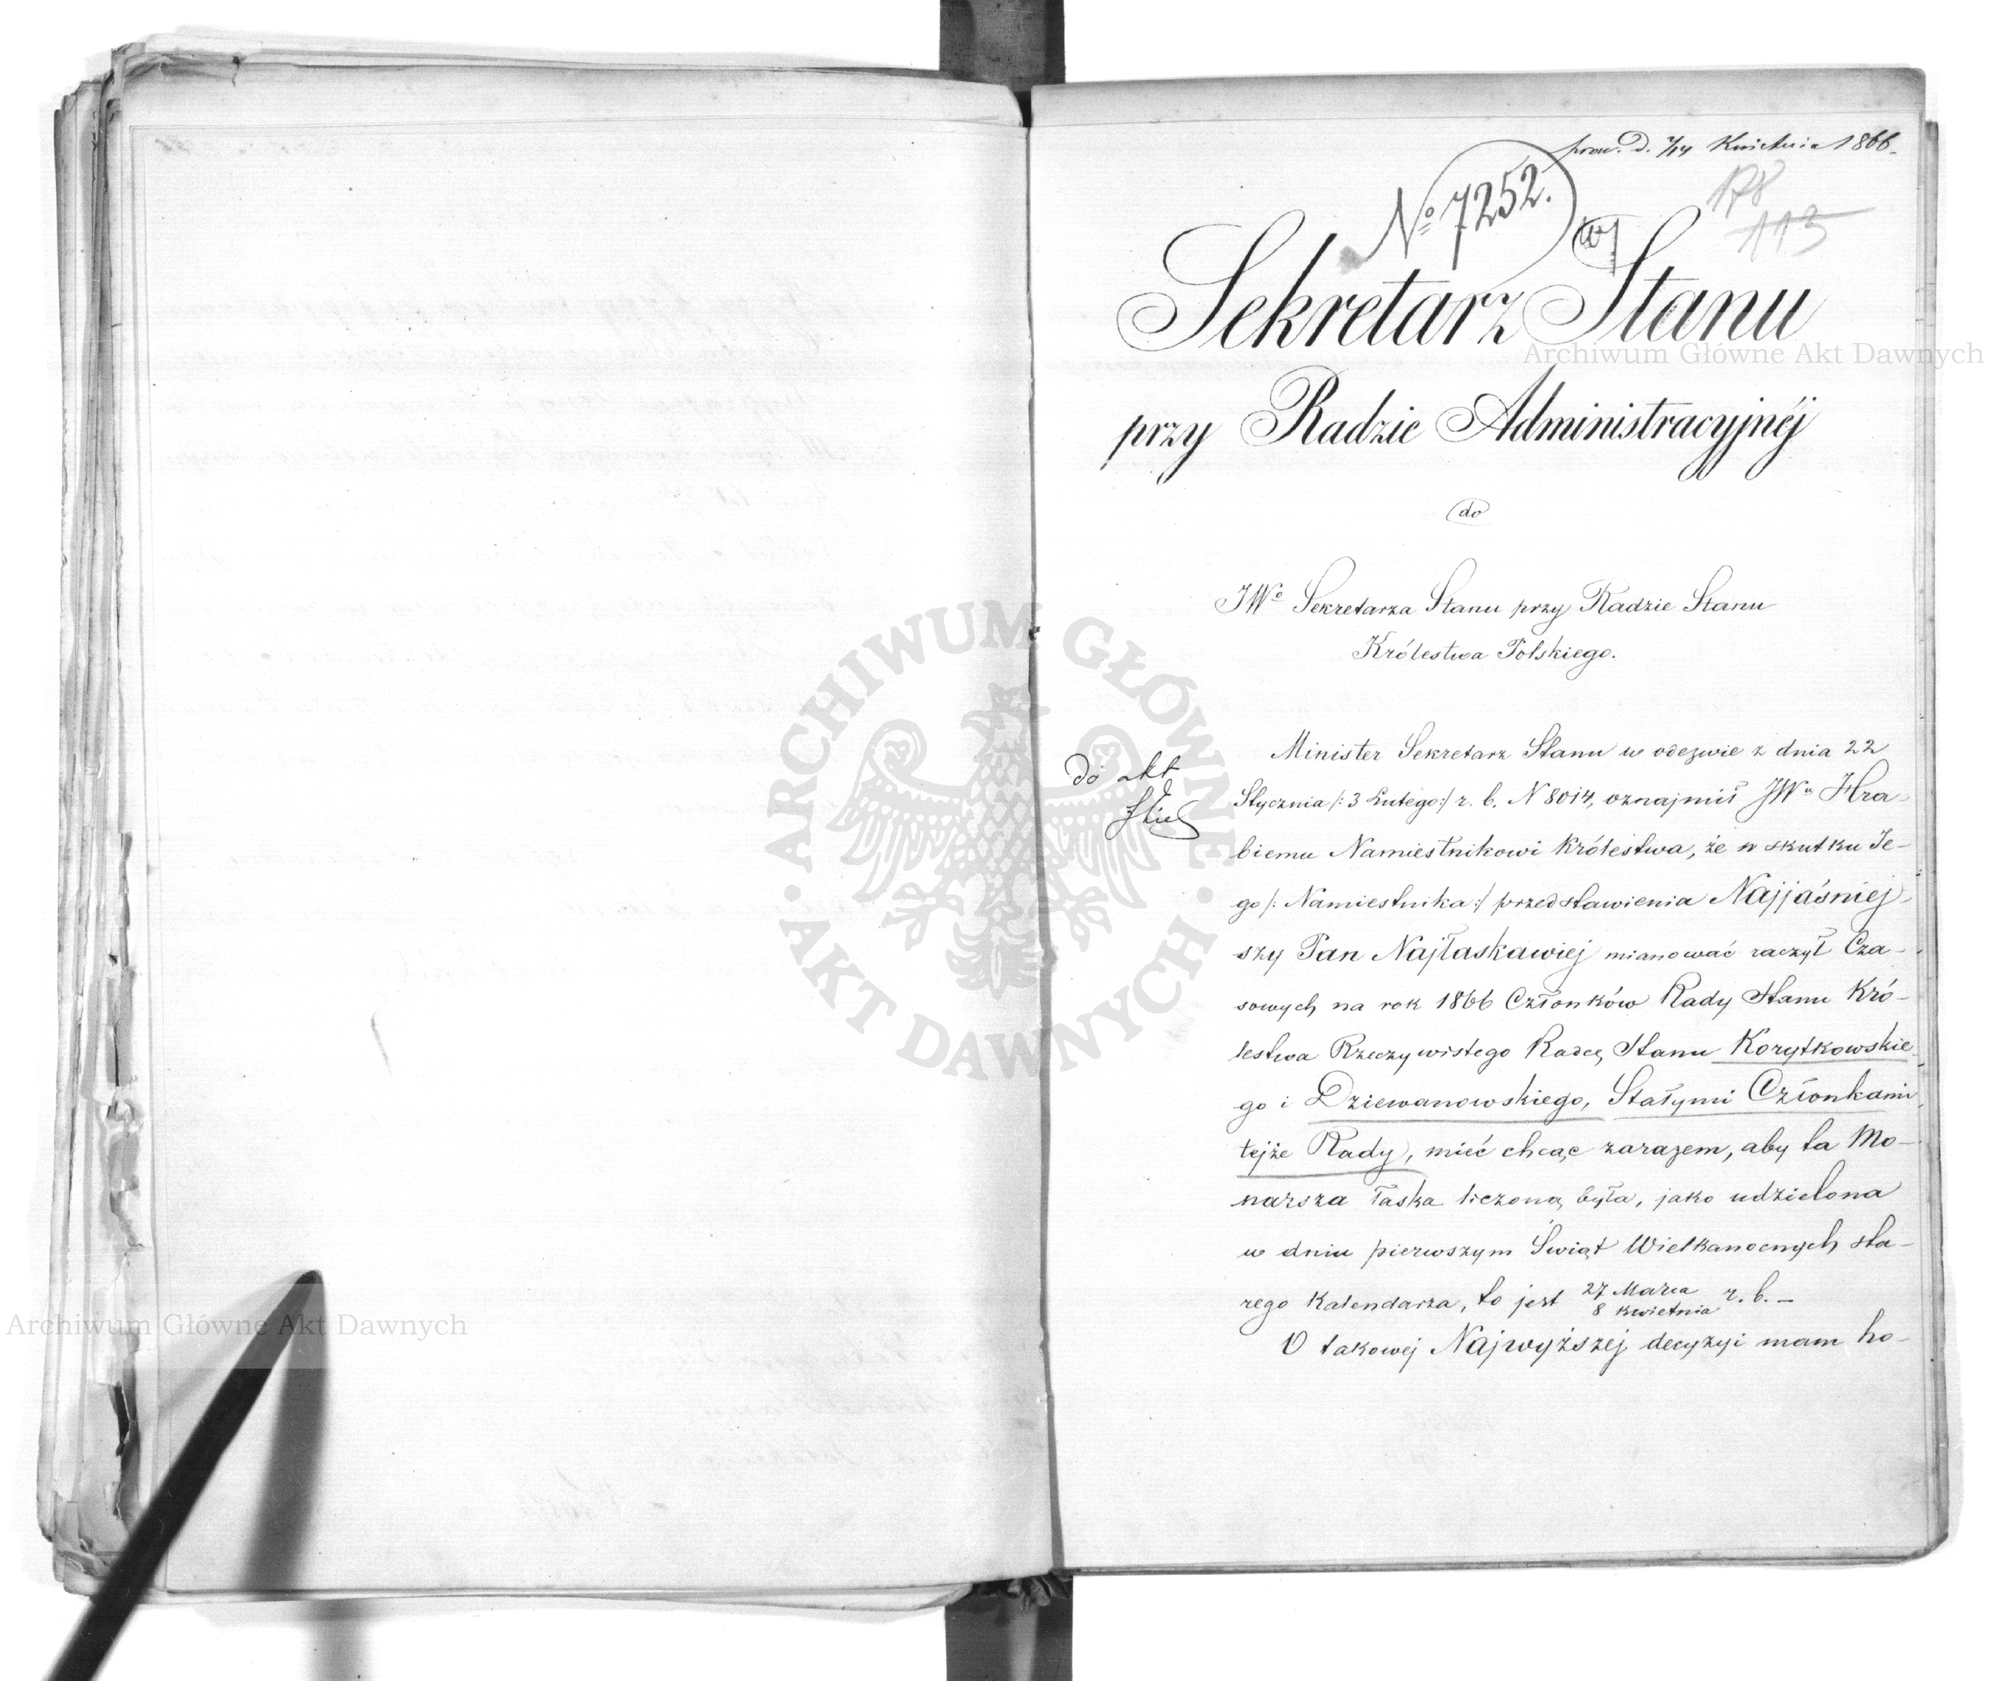 prez. D. 2/14 Kwietnia 1866.
No 7252.
178
113
Sekretarz Stanu
przy Radzie Administracyjnéj
do
JWo Sekretarza Stanu przy Radzie Stanu
Królestwa Polskiego.
do akt
Minister Sekretarz Stanu w odezwie z dnia 22
Stycznia /: 3 Lutego :/ r. b. N 8014, oznajmił JWu Hra-
biemu Namiestnikowi Królestwa, że w skutku Je-
go /: Namiestnika :/ przedstawienia Najjaśniej-
szy Pan Najłaskawiej mianować raczył Cza-
sowych na rok 1866 Członków Rady Stanu Kró-
lestwa Rzeczywistego Radcę Stanu Korytkowskie-
go i Dziewanowskiego, Stałymi Członkami
tejże Rady, mieć chcąc zarazem, aby ta Mo-
narsza łaska liczoną była, jako udzielona
w dniu pierwszym Świąt Wielkanocnych sta-
rego Kalendarza, to jest 27 Marca / 8 Kwietnia r. b. —
O takowej Najwyższej decyzyi mam ho-
Archiwum Główne Akt Dawnych
Archiwum Główne Akt Dawnych
ARCHIWUM GŁÓWNE
· AKT DAWNYCH ·